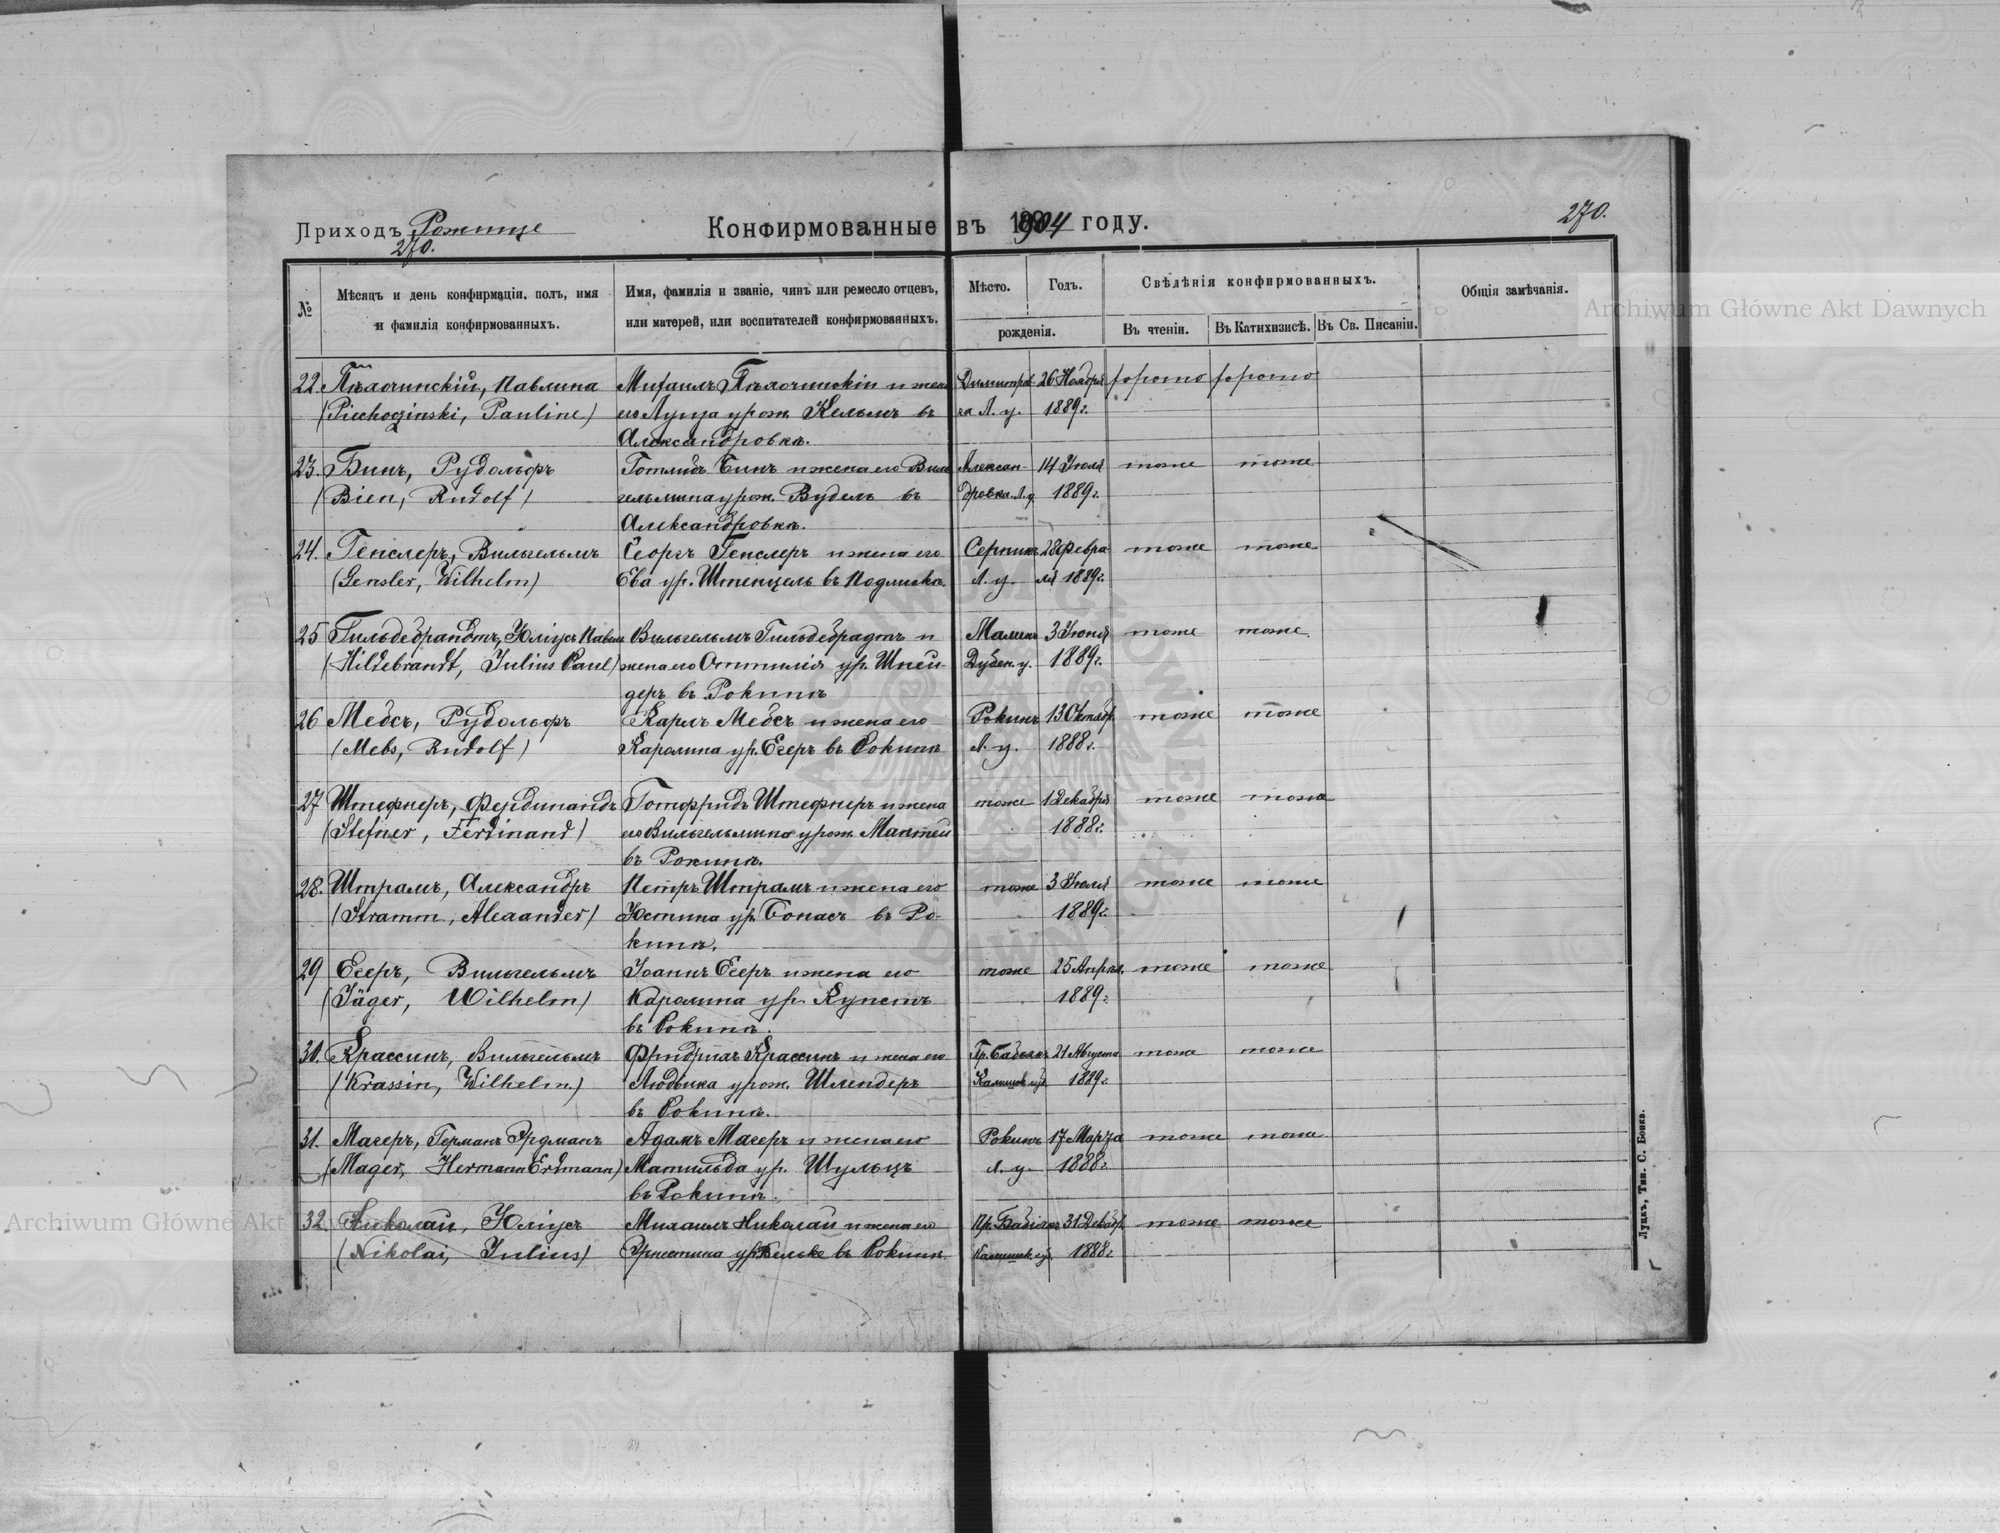 Приходъ Рожище
270.
Конфирмованные въ 1904 году.
270.
№
Мѣсяцъ и день конфирмаціи, полъ, имя
и фамилія конфирмованныхъ.
Имя, фамилія и званіе, чинъ или ремесло отцевъ,
или матерей, или воспитателей конфирмованныхъ.
Мѣсто.
Годъ.
рожденія.
Свѣдѣнія конфирмованныхъ.
Въ чтеніи.
Въ Катихизисѣ.
Въ Св. Писаніи.
Общія замѣчанія.
22. Павлина Михаилъ и жена 26 Ноября хорошо хорошо
(Piechozinski, Pauline) его урож. Кельмъ въ Л. у. 1889 г.
Александровкѣ.
23. Бинъ, Рудольфъ Готлибъ Бинъ и жена его Виль Алексан- 14 Іюля тоже тоже
(Bien, Rudolf) гельмина урож. Вудель въ дровка Л. у. 1889 г.
Александровкѣ.
24. Генслеръ, Вильгельмъ Георгъ Генслеръ и жена его 28 Февра тоже тоже
(Gensler, Wilhelm) Ева ур. Штенцель въ Л. у. ля 1889 г.
25 Гильдебрандтъ, Юліусъ Павелъ Вильгельмъ Гильдебрадтъ и Малинъ 3 Іюня тоже тоже.
(Hildebrandt, Julius Paul) жена его Оттилія ур. Шней- Дубен. у. 1889 г.
деръ въ Рокини
26 Мебсъ, Рудольфъ Карлъ Мебсъ и жена его Рокинь 13 Октябр. тоже тоже
(Mebs, Rudolf) Каролина ур. Егеръ въ Рокини Л. у. 1888 г.
27 Штефнеръ, Фердинандъ Готфридъ Штефнеръ и жена тоже 1 Декабря тоже тоже
(Stefner, Ferdinand) его Вильгельмина урож. Мантей 1888 г.
въ Рокини.
28. Штрамъ, Александръ Петръ Штрамъ и жена его тоже 3 Іюля тоже тоже
(Stramm, Alexander) Юстина ур. Бонасъ въ Ро- 1889 г.
кини.
29 Егеръ, Вильгельмъ Іоаннъ Егеръ и жена его тоже 25 Апрѣл. тоже тоже
(Jäger, Wilhelm) Каролина ур. въ Рокини. 1889 г.
30. Крассинъ, Вильгельмъ Фридрихъ Крассинъ и жена его 21 Августа тоже тоже
(Krassin, Wilhelm) урож. Шлендеръ 1889 г.
въ Рокини.
31. Магеръ, Германъ Эрдманъ Адамъ Магеръ и жена его Рокинь 17 Марта тоже тоже
(Mager, Hermann Erdmann) Матильда ур. Шульцъ Л. у. 1888 г.
въ Рокини.
32. Николай, Юліусъ Михаилъ Николай и жена его 31 Декабр. тоже тоже
(Nikolai, Julius) въ Рокини 1888 г.
Луцкъ, Тип. С. Бонка.
Archiwum Główne Akt Dawnych
Archiwum Główne Akt